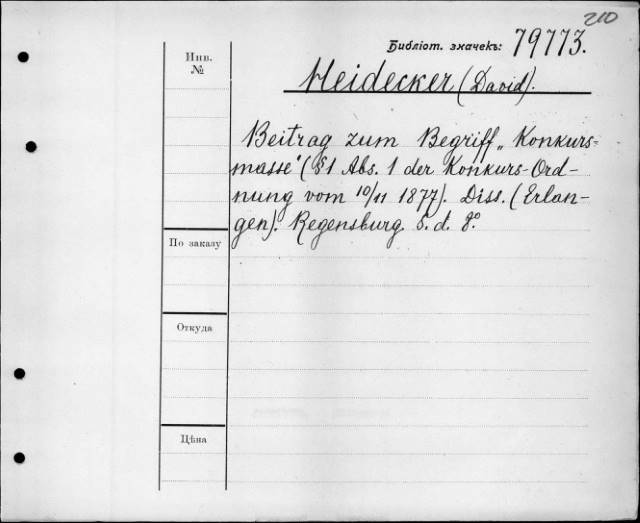 210
Библіот. значекъ: 79773.
Инв.
№
Heidecker (David).
Beitrag zum Begriff „Konkurs=
masse“ (§1 Abs. 1 der Konkurs-Ord-
nung vom 10/11 1877). Diss. (Erlan-
gen). Regensburg. S. d. 8°.
По заказу
Откуда
Цѣна